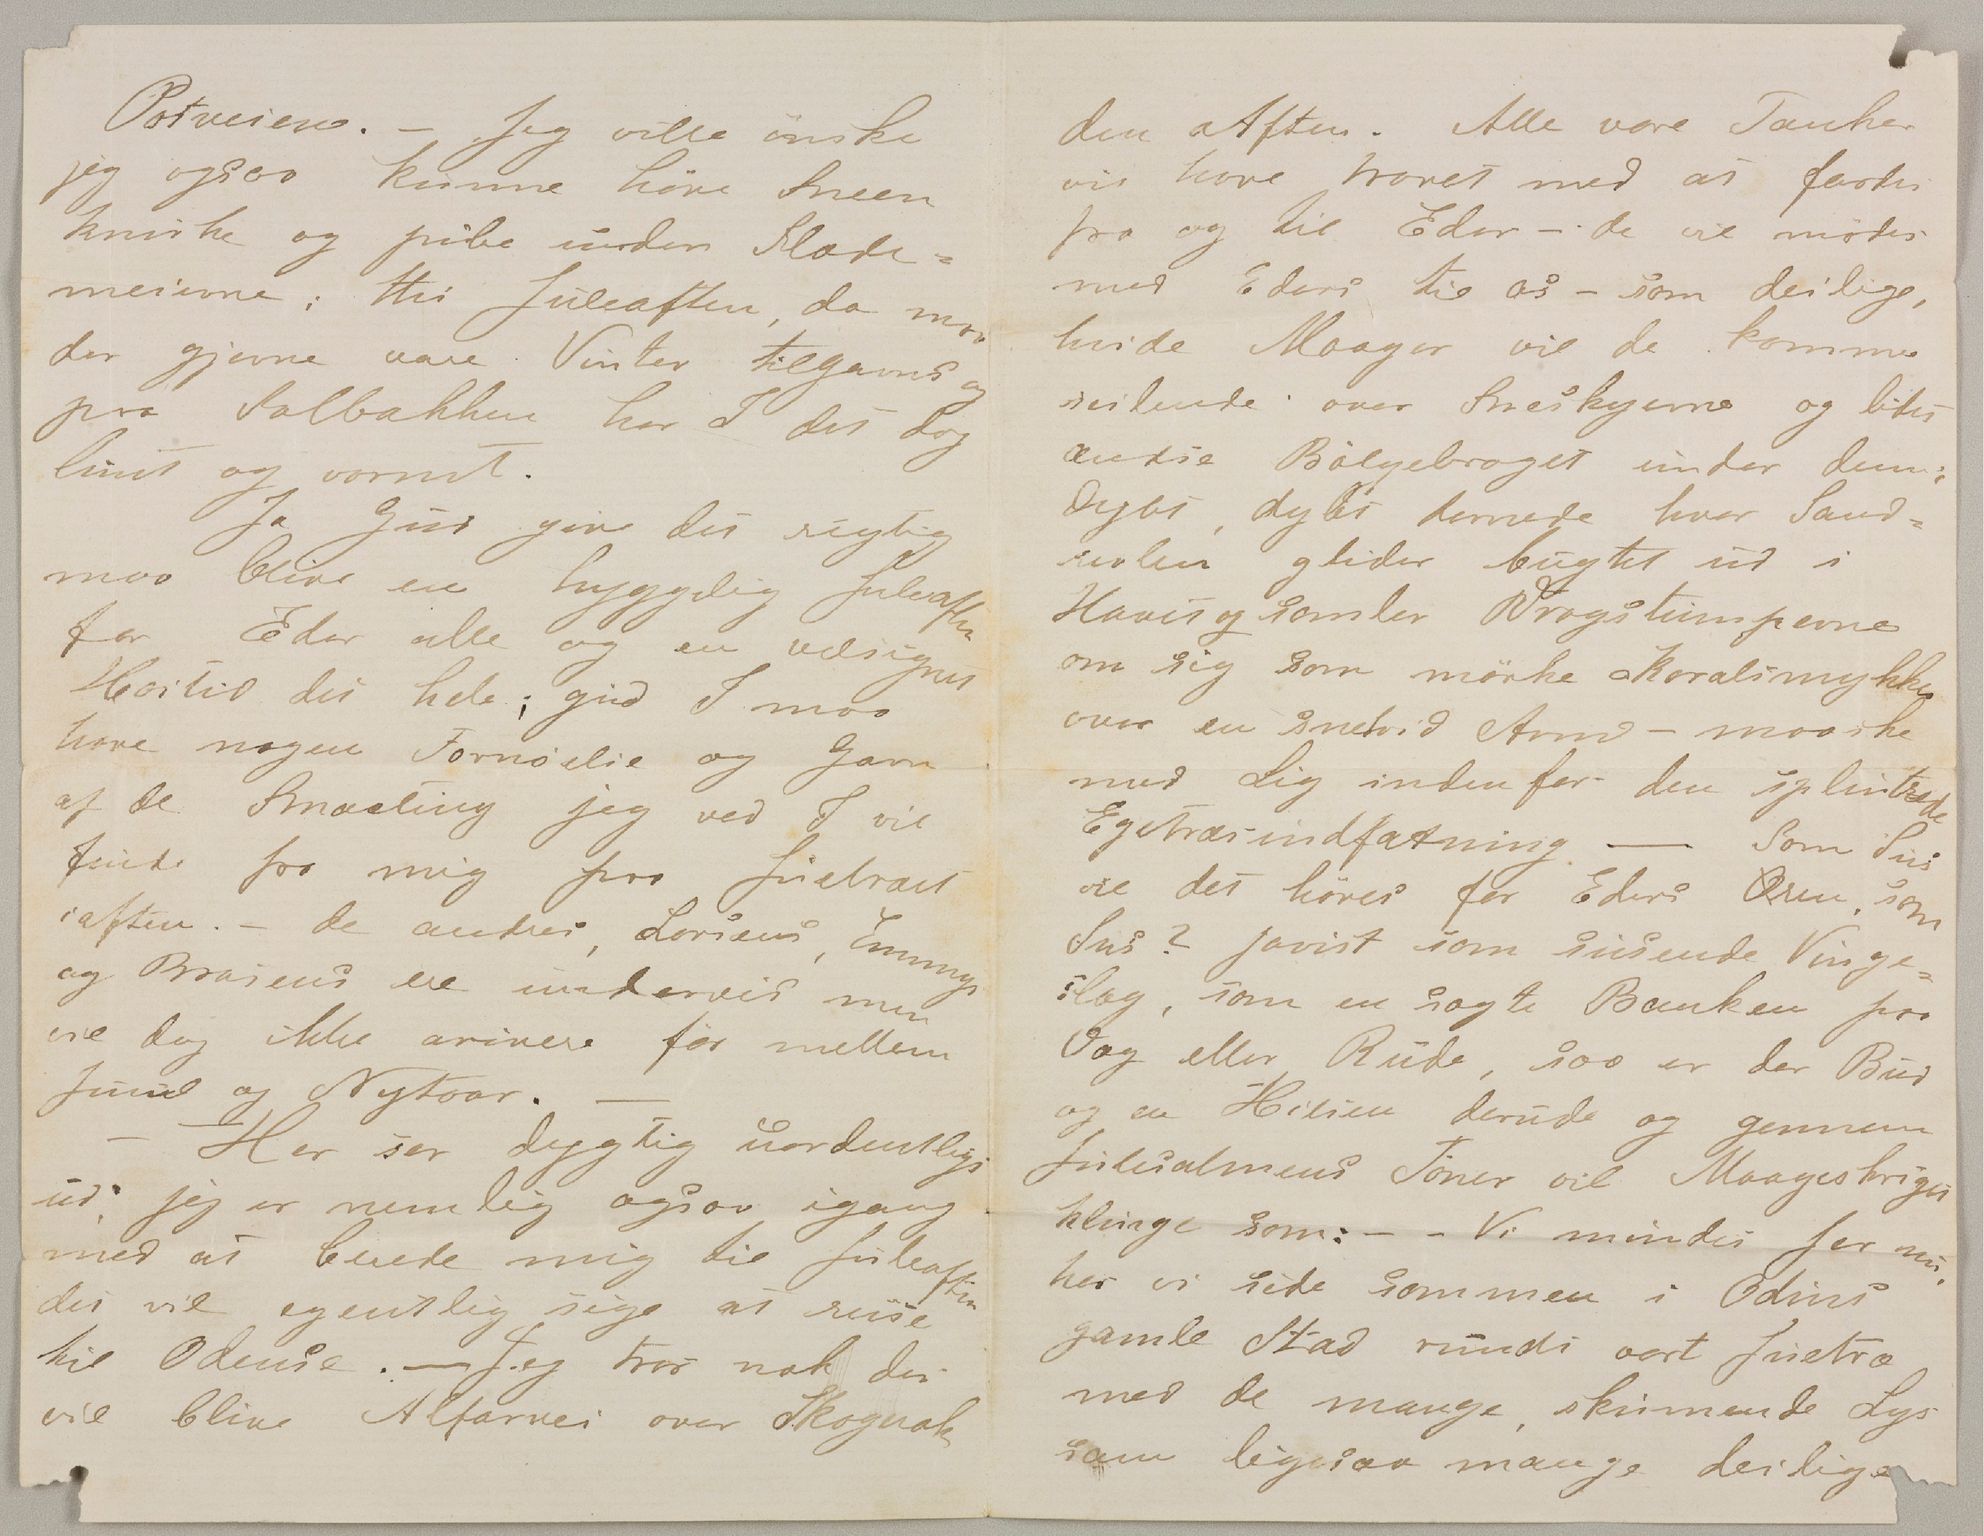 Postveiene. – Jeg ville önske
jeg ogsaa kunne höre Sneen
knirke og pibe under Slæde-
meierne; thi Juleaften, da maa
der gjerne være Vinter tilgavns og
paa Solbakken har I det dog
lunt og varmt.
Ja Gud give det rigtig
maa blive en hyggelig Juleaften
for Eder alle og en velsignet
Høitid det hele; gid I maa
have nogen Fornöielse og Gavn
af de Smaating jeg ved I vil
finde fra mig paa Juletræet
iaften. – de andres, Larsens, Emmys
og Brasens ere underveis men
vil dog ikke arivere för mellem
Juul og Nytaar. —
– Her ser dygtig uordentligt
ud; jeg er nemlig ogsaa igang
med at berede mig til Juleaften
det vil egentlig sige at reise
til Odense. — Jeg tror nok der
vil blive Alfarvei over Skagerak
den Aften. Alle vore Tanker
vil have travlt med at færdes
fra og til Eder – de vil mødes
med Eders til os – som deilige,
hvide Maager vil de komme
seilende over Sneskyerne og lidet
ændse Bölgebraget under dem;
Dybt, dybt dernede hvor Sand-
revlen glider bugtet ud i
Havet og samler Vragstumperne
om sig som mörke Koralsmykker
over en snehvid Arm – maaske
med Lig indenfor den splintrede
Egetræsindfatning — Som Sus
vil det höres for Eders Øren, som
Sus? javist som susende Vinge-
slag, som en sagte Banken paa
Tag eller Rude, saa er der Bud
og en Hilsen derude og gennem
Julesalmens Toner vil Maageskriget
klinge som: – – Vi mindes Jer nu,
her vi sidde sammen i Odins
gamle Stad rundt vort Juletræ
med de mange, skinnende Lys
som ligesaa mange deilige